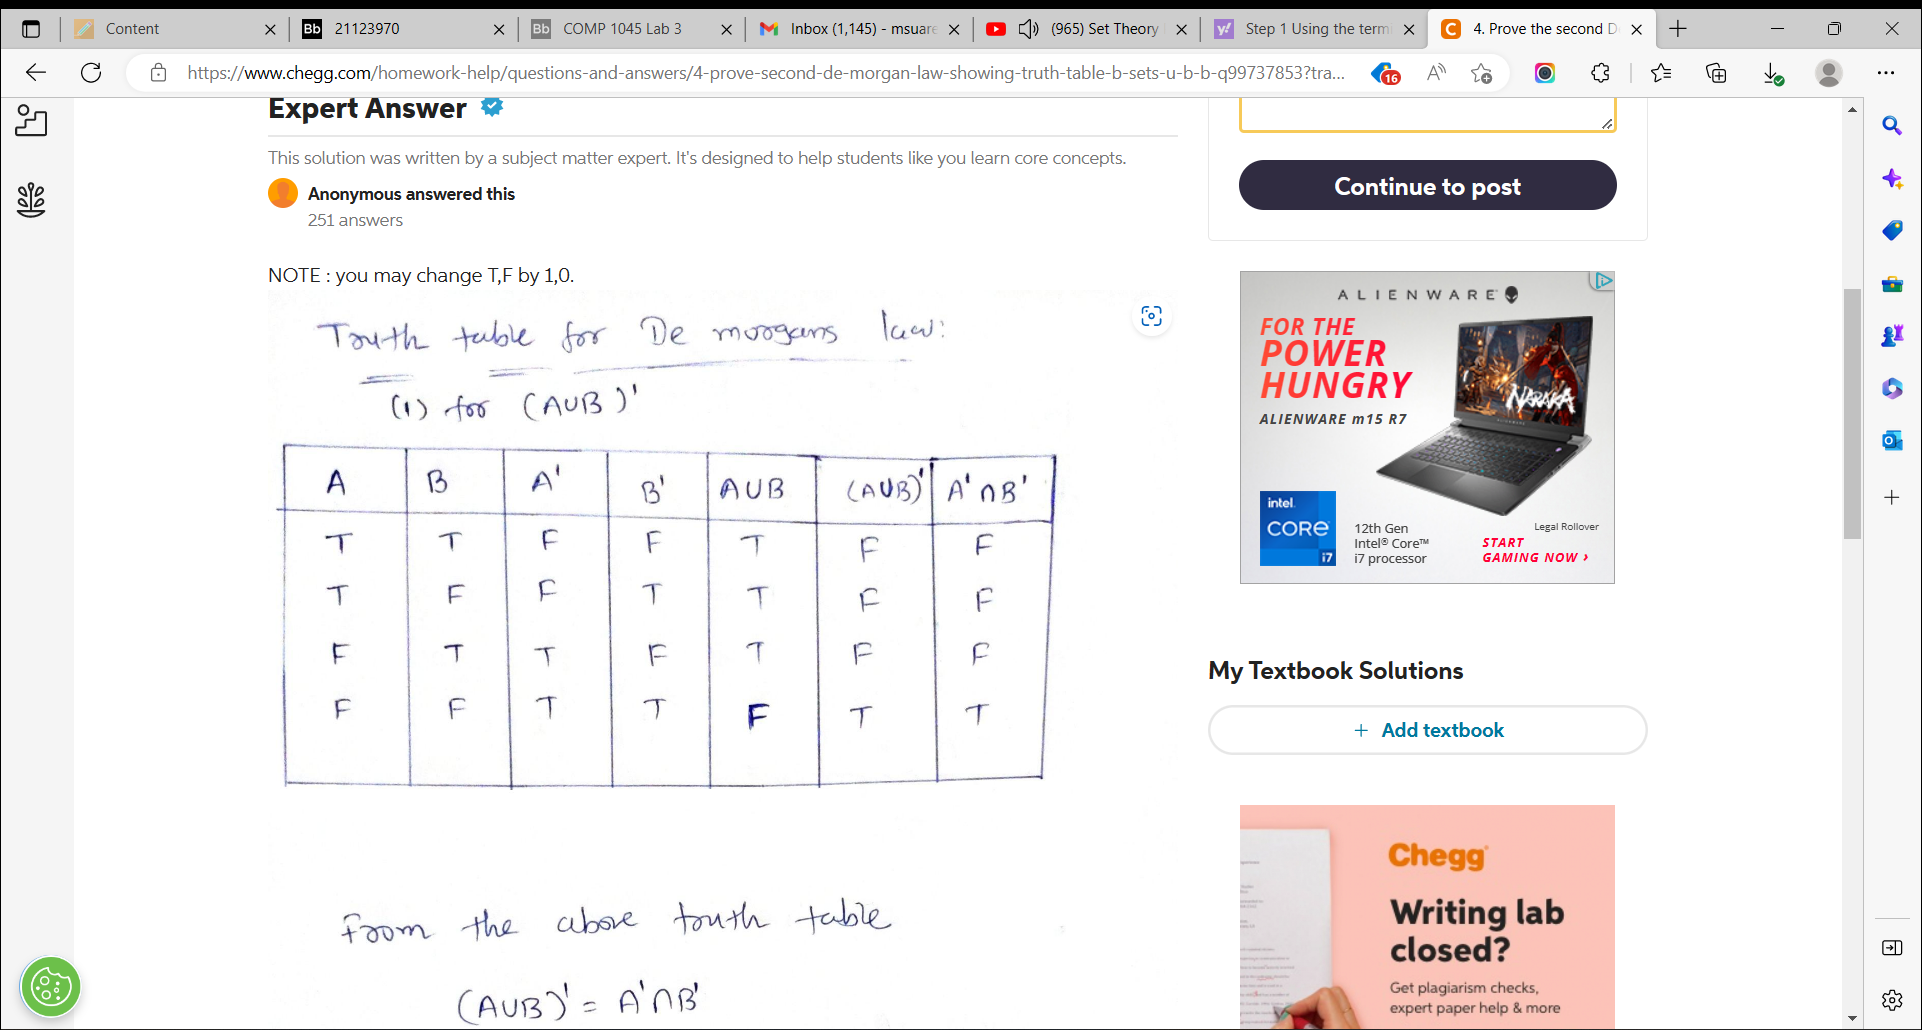 Content
Bb 21123970
Bb COMP 1045 Lab 3
Inbox (1,145) - msuare
(965) Set Theory
y! Step 1 Using the term
C 4. Prove the second D
https://www.chegg.com/homework-help/questions-and-answers/4-prove-second-de-morgan-law-showing-truth-table-b-sets-u-b-b-q99737853?tra...
16
Expert Answer
This solution was written by a subject matter expert. It's designed to help students like you learn core concepts.
Anonymous answered this
251 answers
NOTE : you may change T,F by 1,0.
Truth table for De morgans law:
(1) for (A∪B)'
A B A' B' A∪B (A∪B)' A'∩B'
T T F F T F F
T F F T T F F
F T T F T F F
F F T T F T T
From the above truth table
(A∪B)' = A'∩B'
Continue to post
ALIENWARE
FOR THE
POWER
HUNGRY
ALIENWARE m15 R7
NARAKA
ALIENWARE
intel.
CORE
i7
12th Gen
Intel® Core™
i7 processor
Legal Rollover
START
GAMING NOW ›
My Textbook Solutions
+ Add textbook
Chegg
Writing lab
closed?
Get plagiarism checks,
expert paper help & more